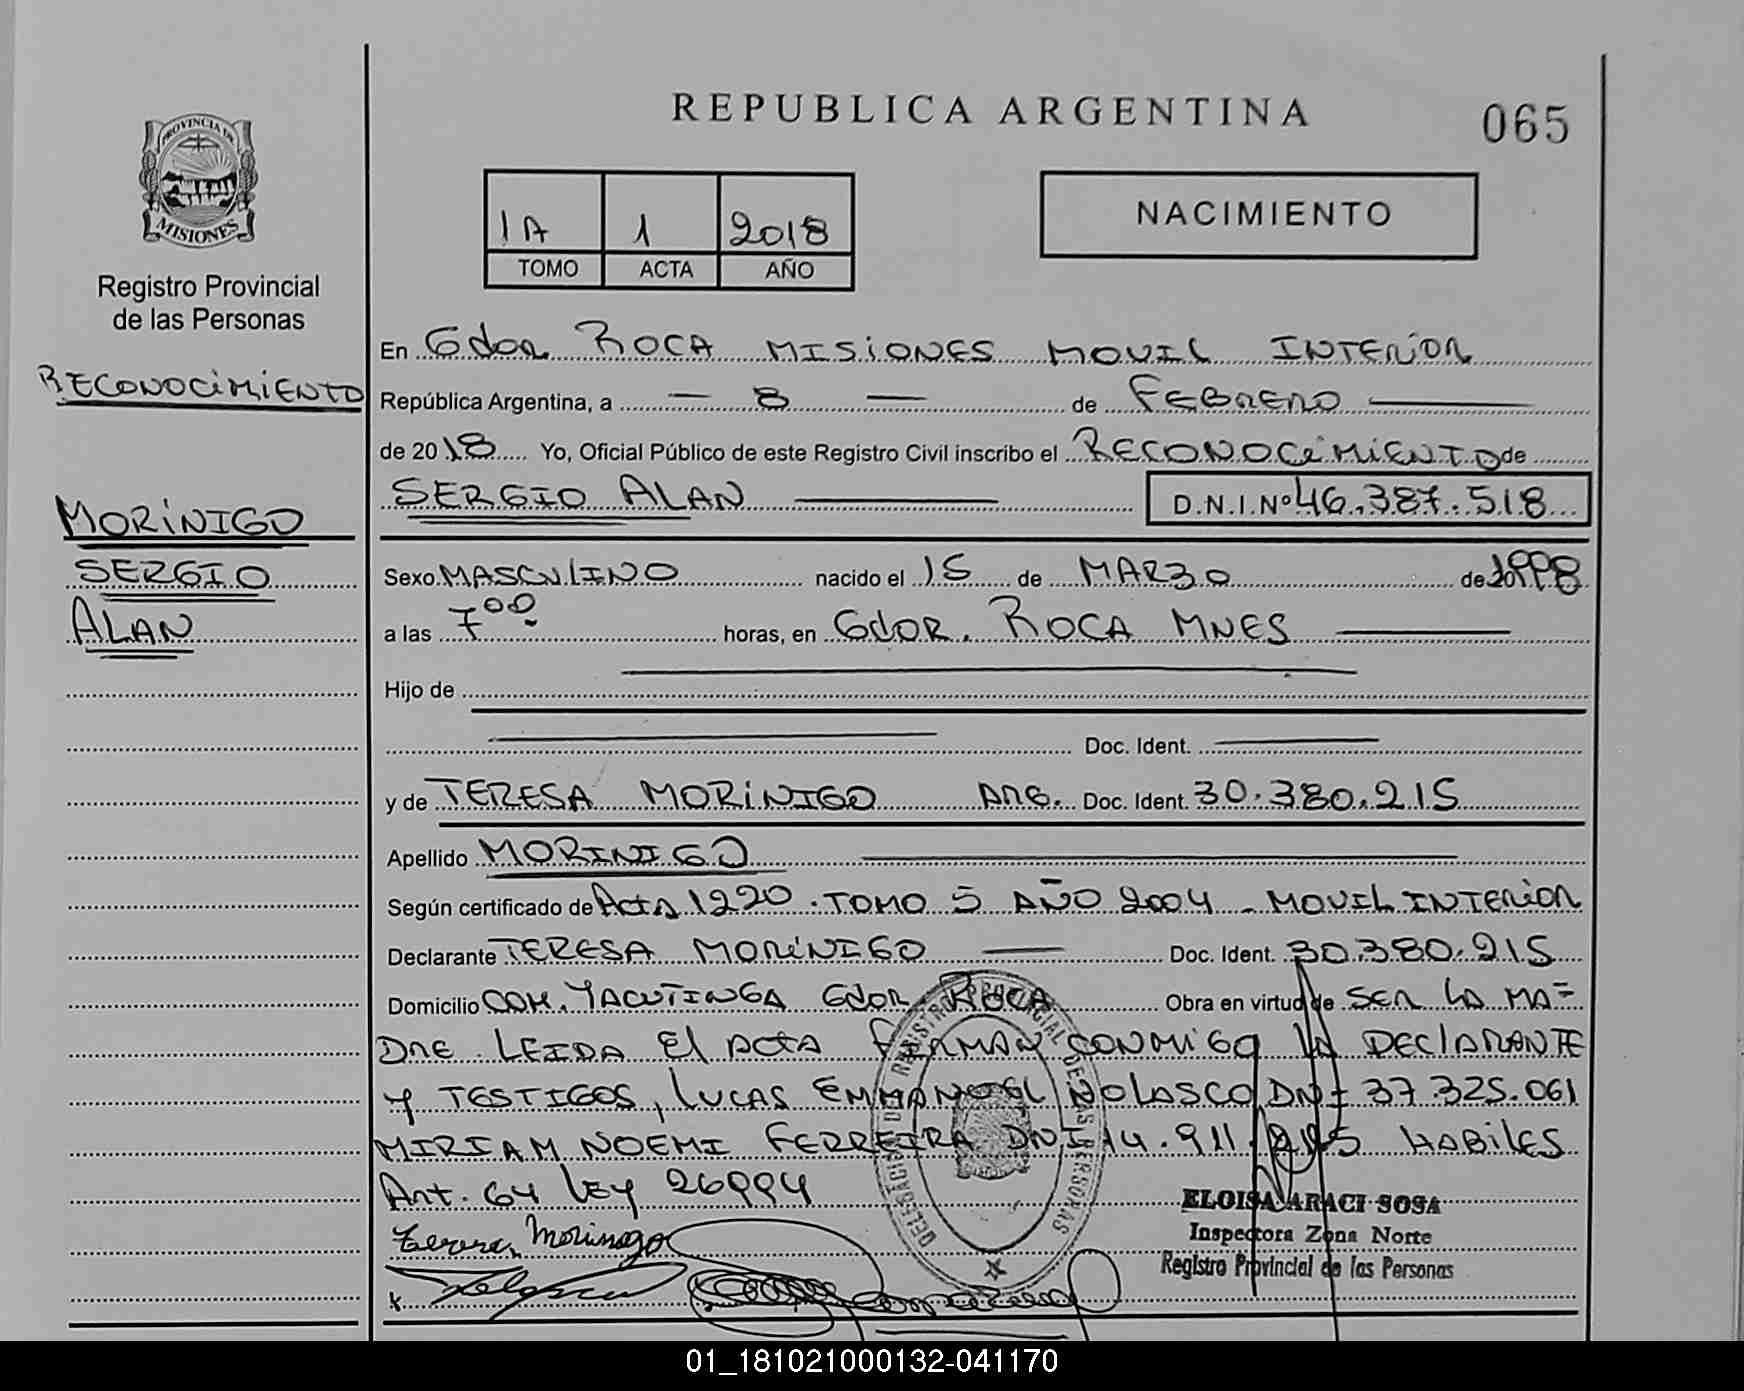 REPUBLICA ARGENTINA
065
PROVINCIA DE
MISIONES
Registro Provincial
de las Personas
RECONOCIMIENTO
MORINIGO
SERGIO
ALAN
1A 1 2018
TOMO ACTA AÑO
NACIMIENTO
En Gdor ROCA MISIONES MOVIL INTERIOR
República Argentina, a — 8 — de FEBRERO
de 2018 Yo, Oficial Público de este Registro Civil inscribo el RECONOCIMIENTO de
SERGIO ALAN D.N.I.Nº 46.387.518
Sexo MASCULINO nacido el 15 de MARZO de 1998
a las 7⁰⁰ horas, en Gdor. ROCA MNES
Hijo de
Doc. Ident.
y de TERESA MORINIGO ARG. Doc. Ident. 30.380.215
Apellido MORINIGO
Según certificado de Acta 1220 . TOMO 5 AÑO 2004 - MOVIL INTERIOR
Declarante TERESA MORINIGO — Doc. Ident. 30.380.215
Domicilio COM. YACUTINGA Gdor ROCA Obra en virtud de SER LA MA=
DRE. LEIDA El ACTA FIRMAN CONMIGO LA DEClARANTE
Y TESTIGOS, LUCAS EMMANOEL NOLASCO DNI 37.325.061
MIRIAM NOEMI FERREIRA DNI 14.911. HABILES
Art. 64 LEY 26994
Teresa Morinigo
DELEGACION DE REGISTRO PROVINCIAL DE LAS PERSONAS
ELOISA ARACI SOSA
Inspectora Zona Norte
Registro Provincial de las Personas
01_181021000132-041170